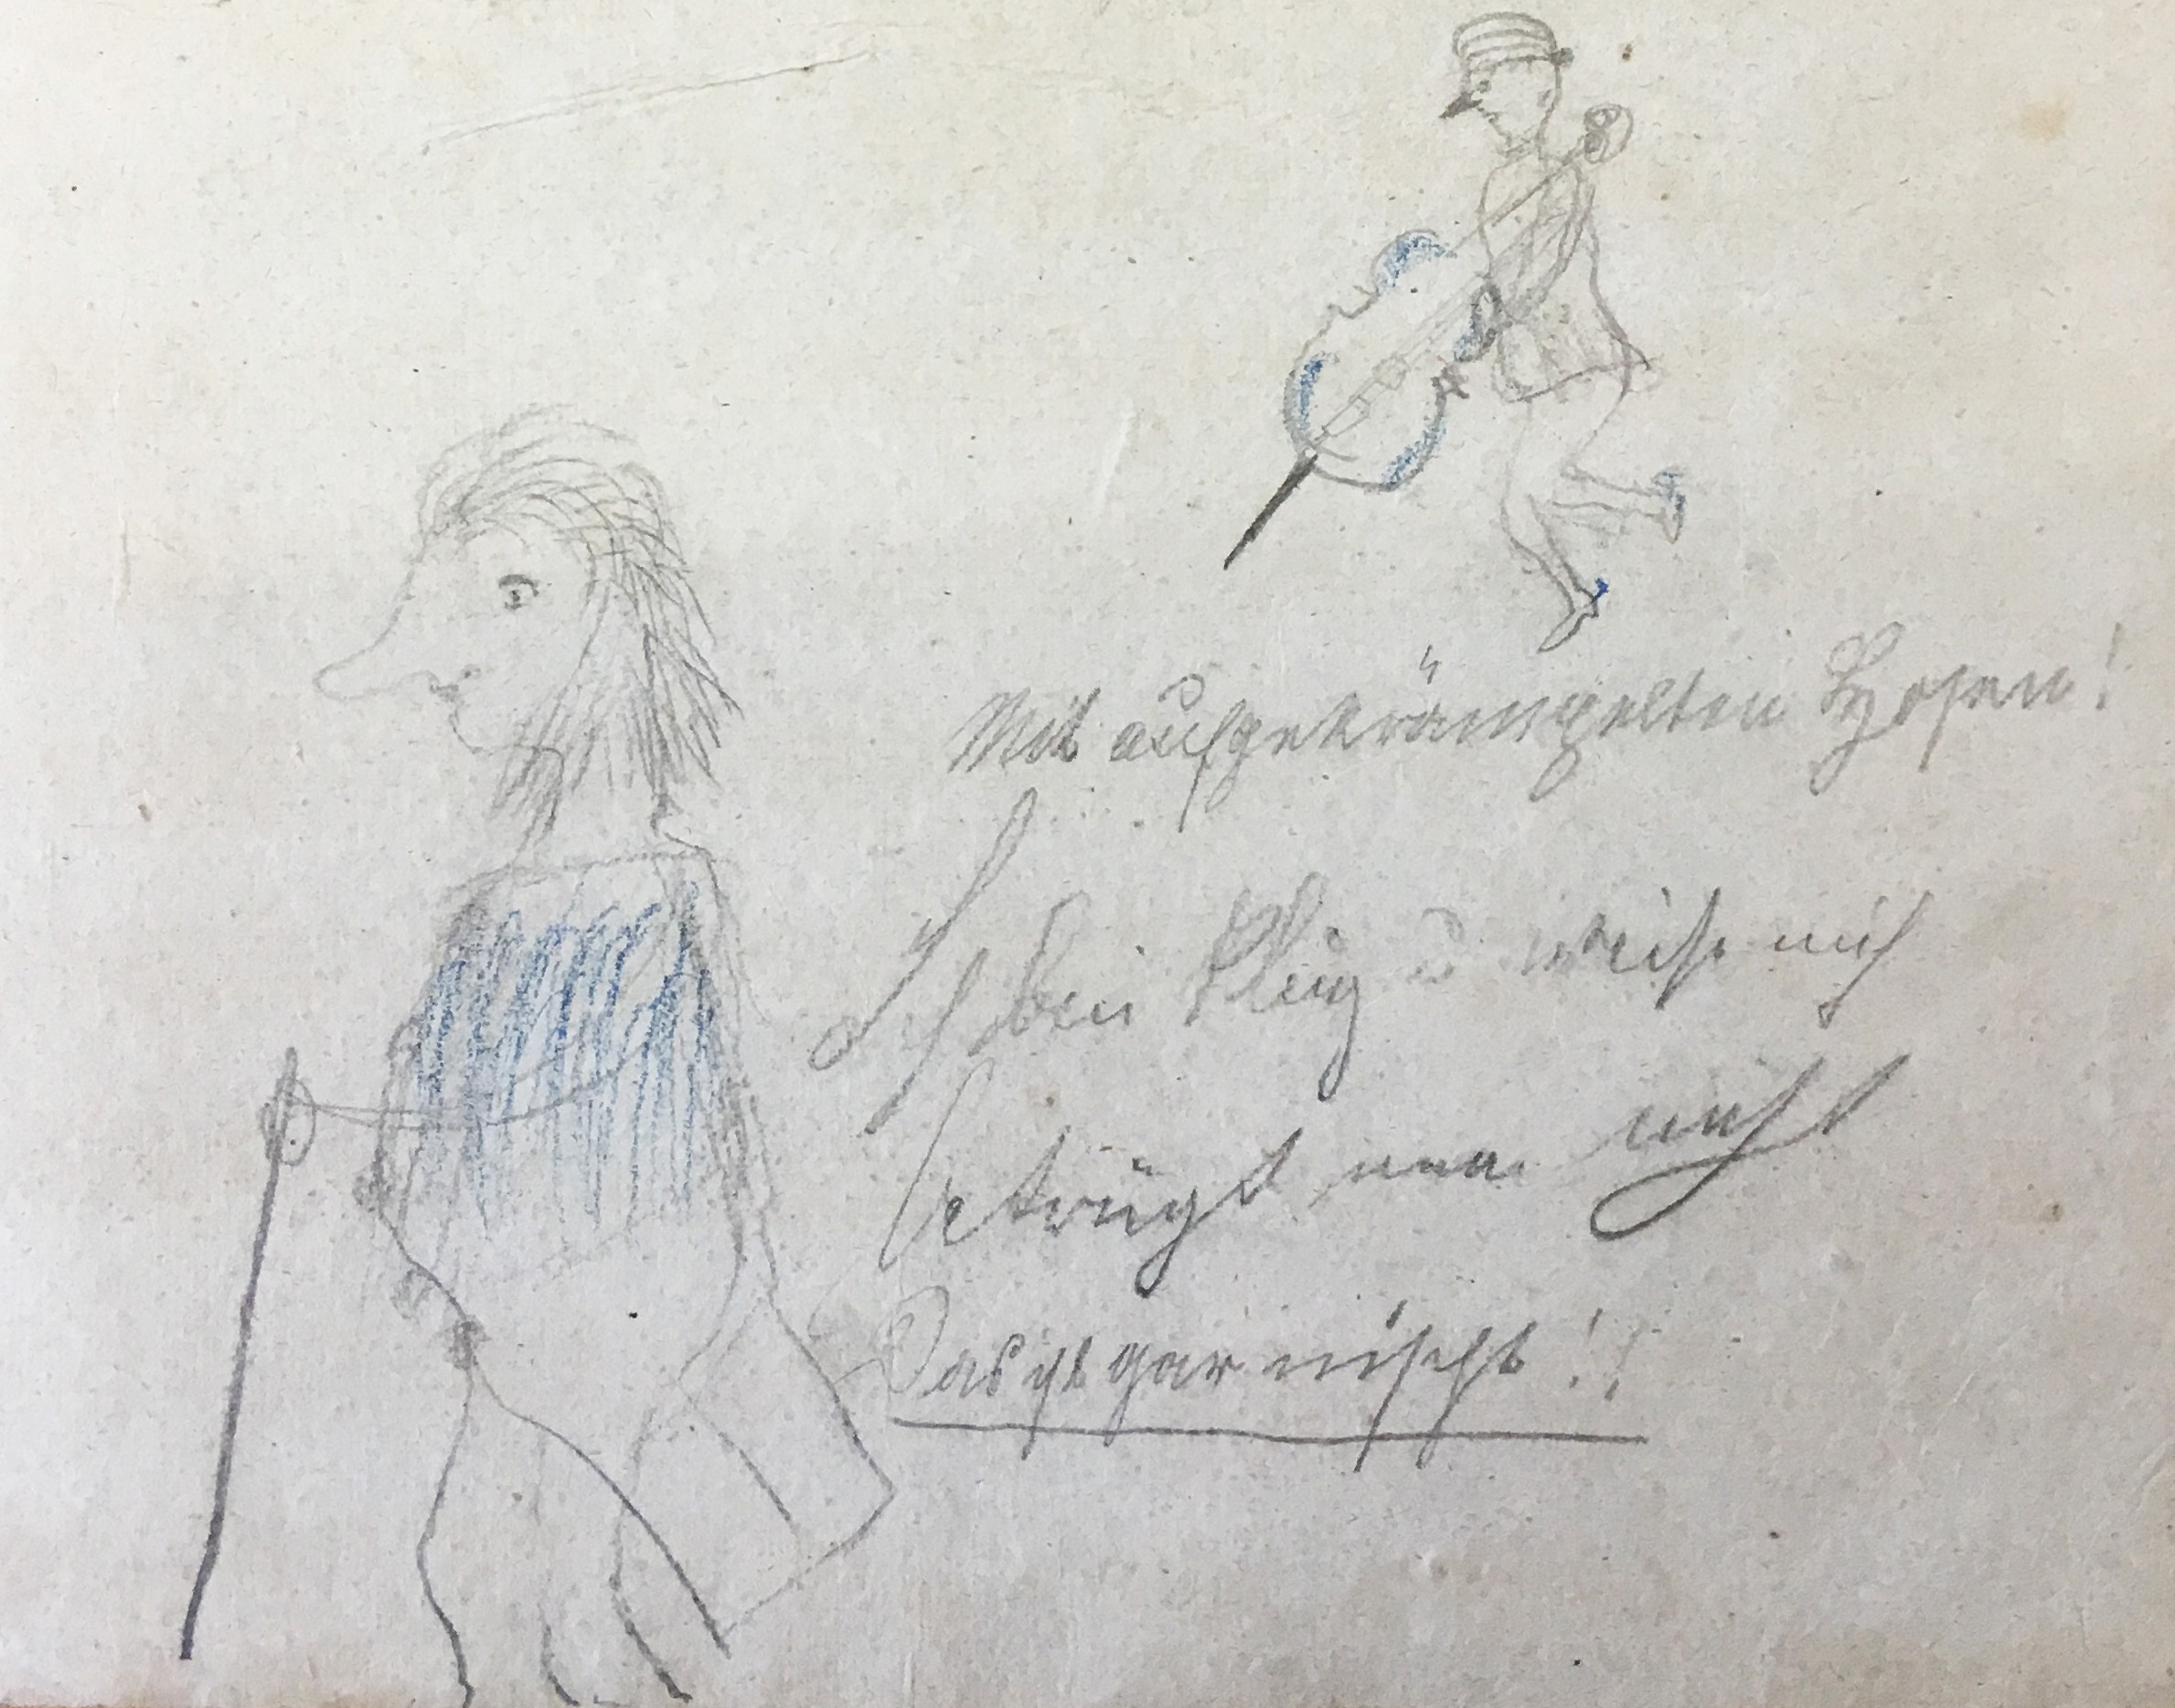 Mit aufgekrämpelten Hosen!
Ich bin klug u weise mich
betrügt man nicht
Das is gar nischt!!